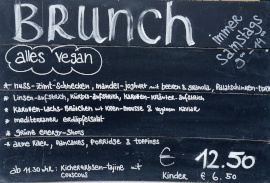 BRUNCH
immer
Samstags
alles vegan
* nuss-zimt-schnecken, mandel-joghurt mit beeren & granola, Palatschinken-torte
* Linsen-aufstrich, Kürbis-aufstrich, Karotten-Kräuter-aufstrich
* Karotten-Lachs-Brötchen mit Kren-mousse & veganem Kaviar
* mediterraner erdäpfelsalat
* grüne energy-shots
* arme Ritter, pancakes, porridge & toppings
ab 11.30 Uhr: Kichererbsen-tajine mit
couscous
€ 12.50
Kinder € 6.50